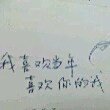 我喜欢当年
喜欢你的我